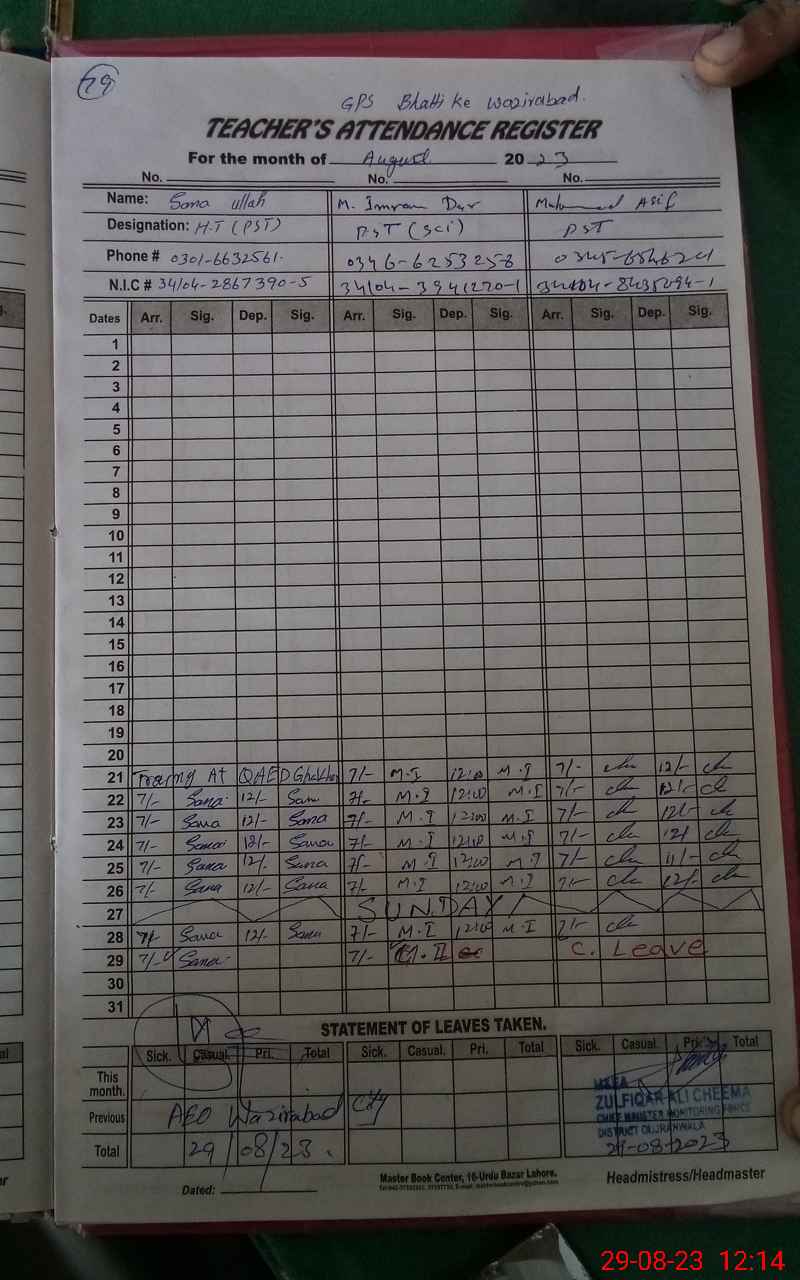 29
GPS Bhatti ke Wazirabad.
TEACHER'S ATTENDANCE REGISTER
For the month of August 2023
No. No. No.
Name: Sana ullah M. Imran Dar Muhammad Asif
Designation: H.T (PST) PST (Sci) PST
Phone # 0301-6632561. 0346-6253258
N.I.C # 34104-2867390-5 34104-3941270-1
Dates Arr. Sig. Dep. Sig. Arr. Sig. Dep. Sig. Arr. Sig. Dep. Sig.
1
2
3
4
5
6
7
8
9
10
11
12
13
14
15
16
17
18
19
20
21 At QAED Ghakhar 7/- M.I 12:00 M.I 7/- 12/-
22 7/- Sana 12/- Sana 7/- M.I 12:00 M.I 7/- 12/-
23 7/- Sana 12/- Sana 7/- M.I 12:00 M.I 7/- 12/-
24 7/- Sana 12/- Sana 7/- M.I 12:00 M.I 7/- 12/
25 7/- Sana 12/. Sana 7/- M.I 12:00 M.I 7/-
26 7/- Sana 12/- Sana 7/- M.I 12:00 M.I 7/- 12/-
27 SUNDAY
28 7/- Sana 12/- Sana 7/- M.I 12:00 M.I 7/-
29 7/- Sana 7/- C. Leave
30
31
STATEMENT OF LEAVES TAKEN.
Sick. Casual. Pri. Total Sick. Casual. Pri. Total Sick. Casual. Pri. Total
This month.
Previous AEO Wazirabad
Total 29/08/23.
MEA
ZULFIQAR ALI CHEEMA
CHIEF MINISTER MONITORING FORCE
DISTRICT GUJRANWALA
29-08-2023
Dated:
Master Book Center, 16-Urdu Bazar Lahore.
Headmistress/Headmaster
29-08-23 12:14